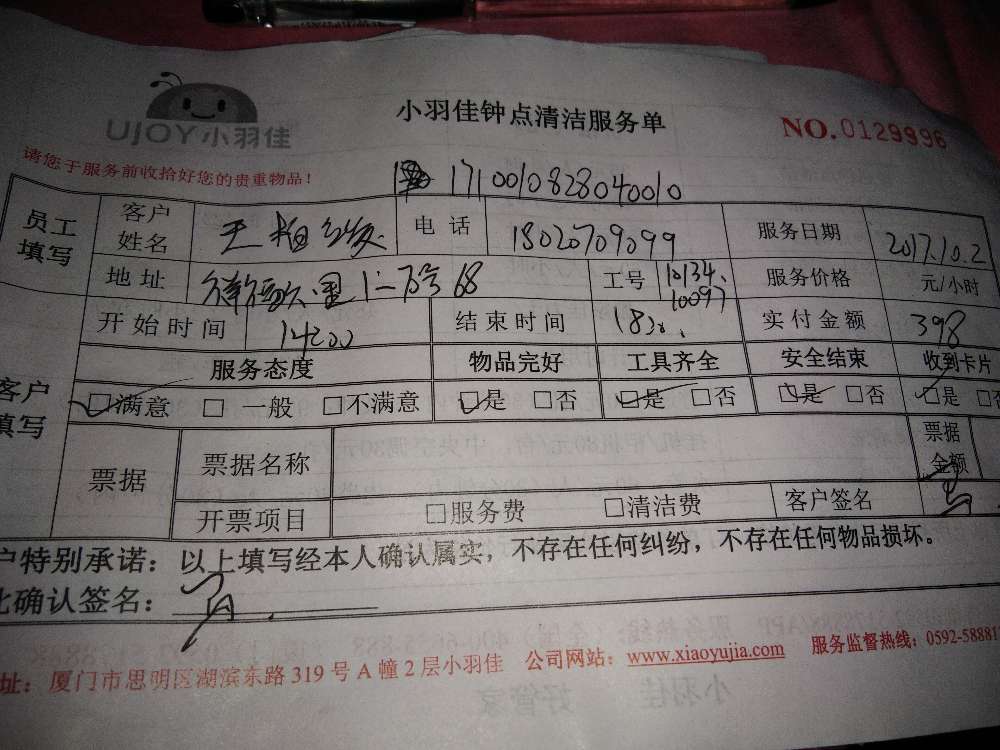 小羽佳钟点清洁服务单
UJOY小羽佳
NO.0129996
请您于服务前收拾好您的贵重物品!
1710010828040010
员工填写 客户姓名 王 电话 18020709099 服务日期 2017.10.2
地址 里 68 工号 10134. 10097 服务价格 元/小时
开始时间 14:00 结束时间 18:00. 实付金额 398
客户填写 服务态度 物品完好 工具齐全 安全结束 收到卡片
□满意 □一般 □不满意 □是 □否 □是 □否 □是 □否 □是 □否
票据 票据名称 票据金额
开票项目 □服务费 □清洁费 客户签名
户特别承诺:以上填写经本人确认属实,不存在任何纠纷,不存在任何物品损坏。
此确认签名:
址:厦门市思明区湖滨东路319号A幢2层小羽佳 公司网站:www.xiaoyujia.com 服务监督热线:0592-58881